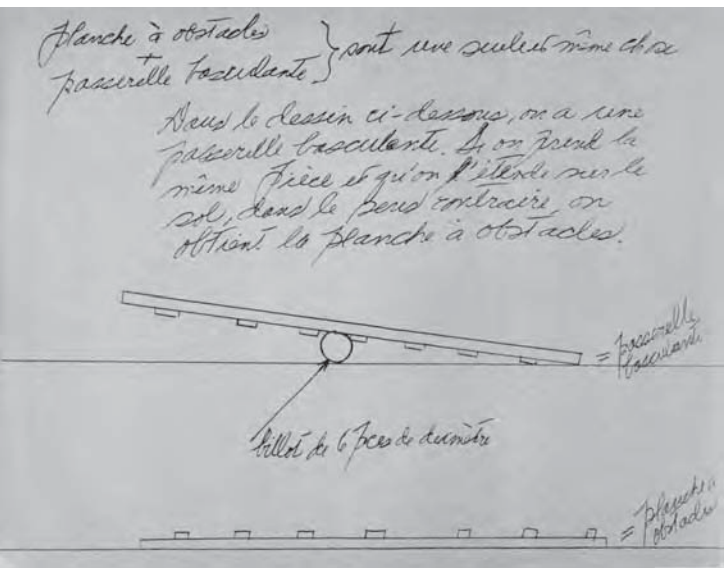 planche à obstacles
+
passerelle basculante } sont une seule et même chose
Dans le dessin ci-dessous, on a une
passerelle basculante. Si on prend la
même pièce et qu'on l'étende sur le
sol, dans le sens contraire, on
obtient la planche à obstacles.
= passerelle
basculante
billot de 6 pces de diamètre
= planche à
obstacles